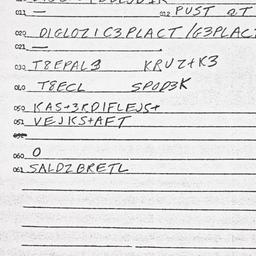 011 — 012 PUST QT
020 DIGLOZIC3PLACT/G3PLACT
021 —
030 T8EPAL3 KRUZ+K3
040 T8ECL SPOD3K
050 KAS+3RDIFLEJS+
051 VEJKS+AFT
060 O
061 SALDZBRETL